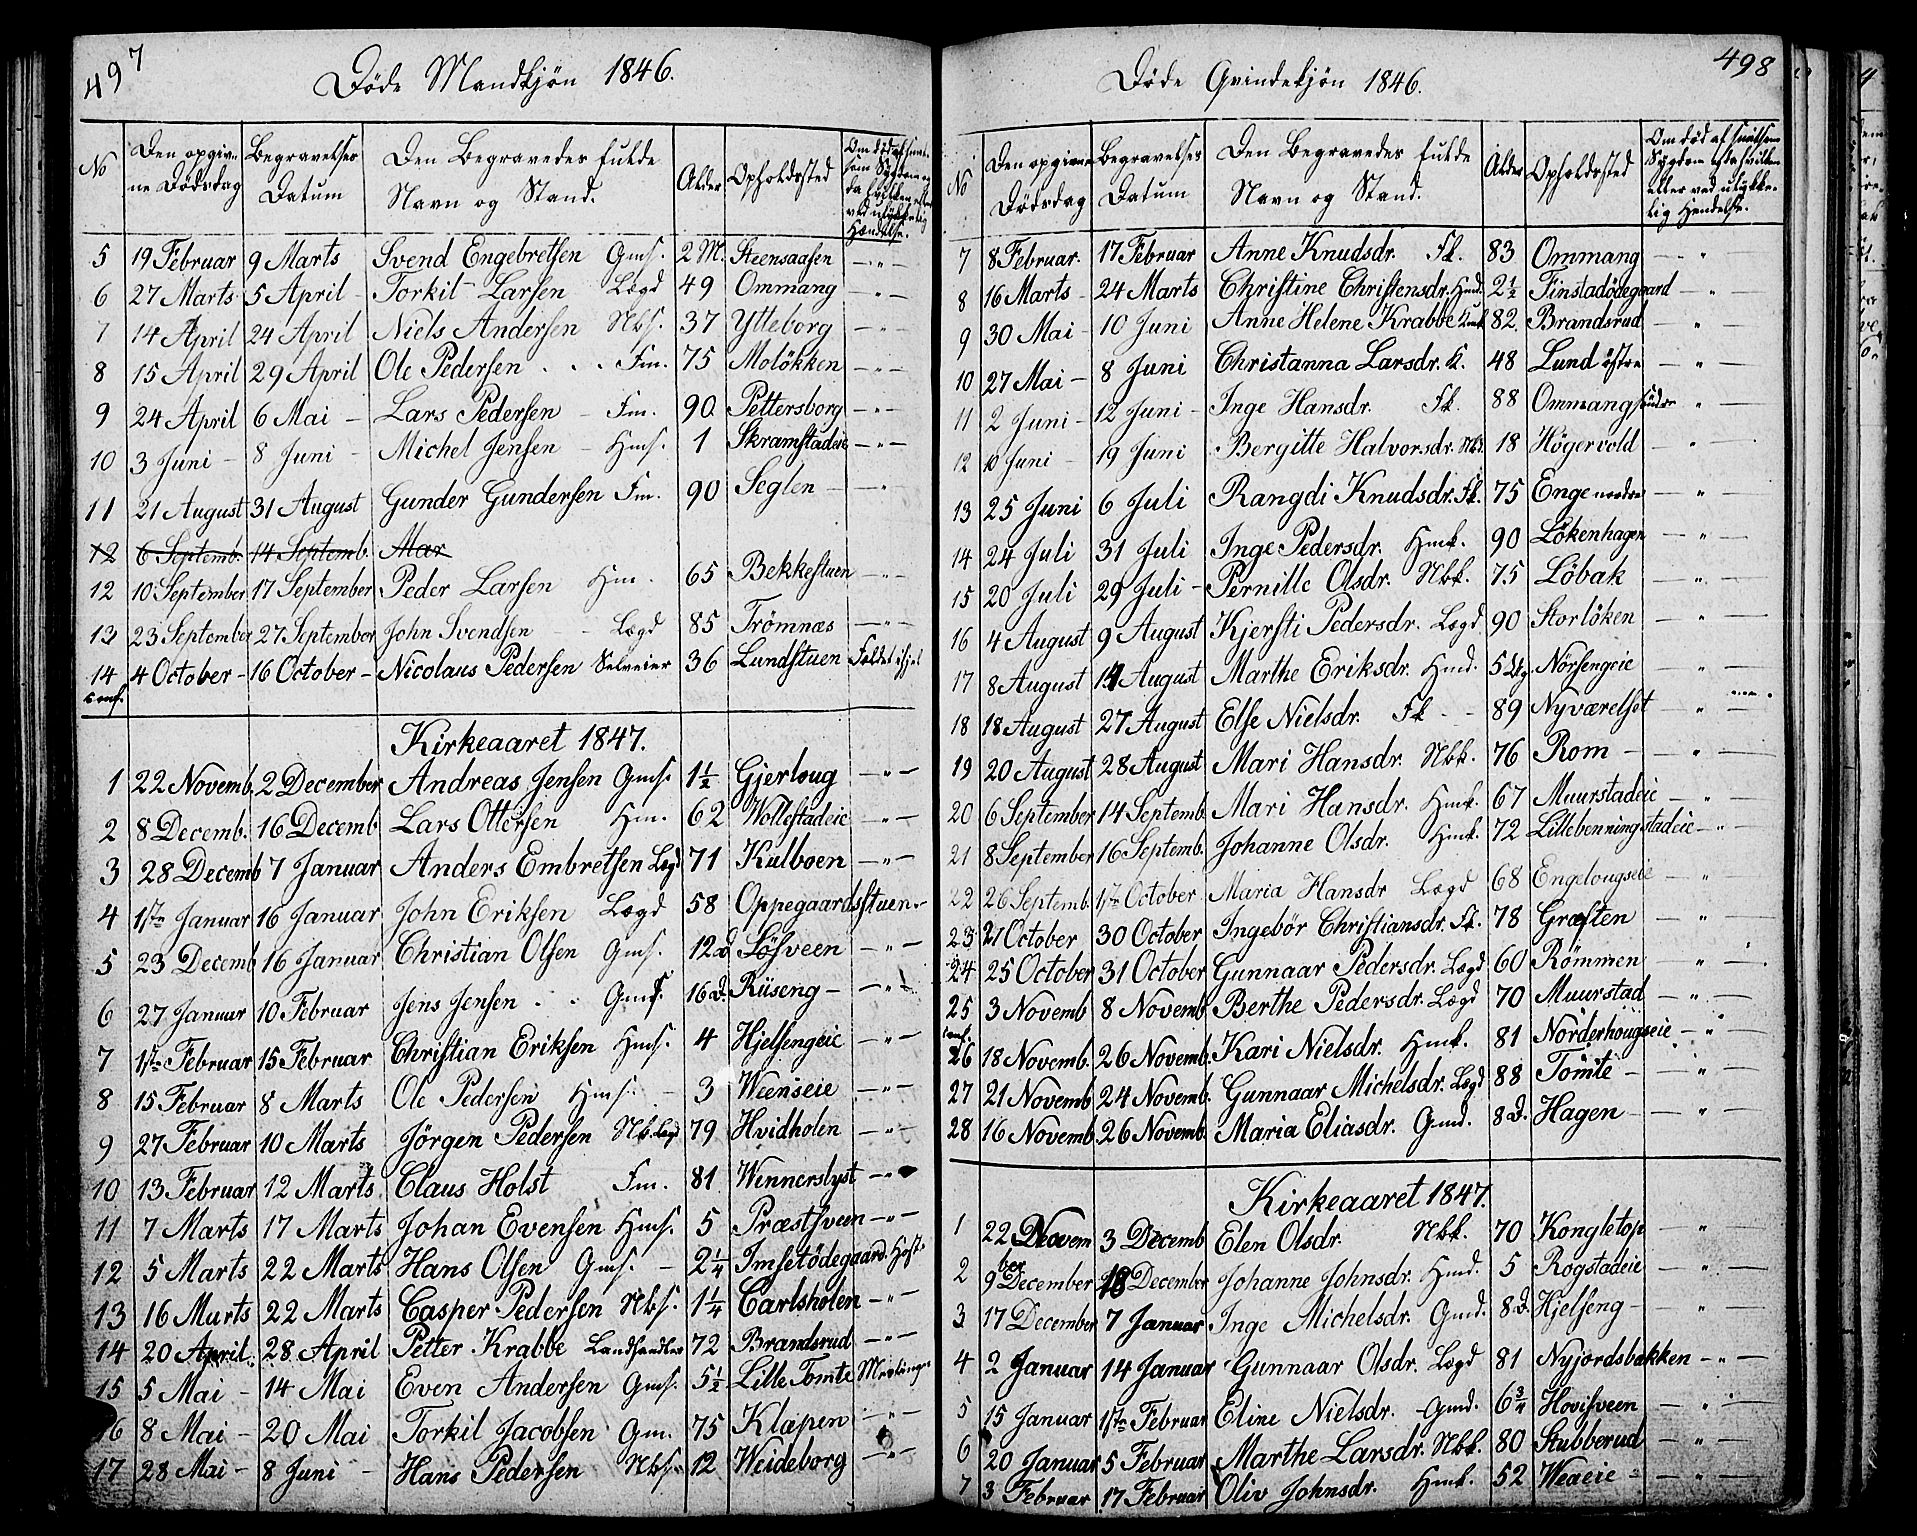 497
Døde Mandkjøn 1846.
No
Den opgivne Dødsdag
Begravelses Datum
Den Begravedes fulde Navn og Stand.
Alder
Opholdssted
5 19 Februar 9 Marts Svend Engebretsen Gms. 2 M. Steensaasen — " —
6 27 Marts 5 April - Torkil Larsen Lægd 49 Ommang — " —
7 14 April 24 April Niels Andersen Nbs. 37 Ytteborg — " —
8 15 April 29 April Ole Pedersen . . . Fm. 75 Moløkken — " —
9 24 April 6 Mai - Lars Pedersen - Fm. 90 Pettersborg — " —
10 3 Juni - 8 Juni - Michel Jensen - Hms. 1 Skramstadeie — " —
11 21 August 31 August Gunder Gundersen Fm. 90 Seglen — " —
12 6 Septemb. 14 Septemb. Mar
12 10 September 17 September Peder Larsen Hm. 65 Bekkestuen — " —
13 23 September 27 September John Svendsen - Lægd 85 Trømnæs — " —
14 4 October - 16 October - Nicolaus Pedersen Selveier 36 Lundstuen Faldet ihjel
Kirkeaaret 1847.
1 22 Novemb. 2 December Andreas Jensen Gms. 1½ Gjerloug — " —
2 8 Decemb. 16 Decemb Lars Ottersen Hm. 62 Wollestadeie — " —
3 28 Decemb 7 Januar Anders Embretsen Lægd 71 Kulboen — " —
4 1ste Januar 16 Januar John Eriksen Lægd 58 Oppegaardsstuen -
5 23 Decemb 16 Januar Christian Olsen Gms. 12 d. Løsveen — " —
6 27 Januar 10 Februar Jens Jensen . . Gms. 16 d. Riiseng - — " —
7 1ste Februar 15 Februar Christian Eriksen Hms. 4 Hjelsengeie — " —
8 15 Februar 8 Marts Ole Pedersen Hms. - 3 Weenseie — " —
9 27 Februar 10 Marts Jørgen Pedersen Nb. Lægd 79 Hvidholen — " —
10 13 Februar 12 Marts Claus Holst Fm. 81 Winnerslyst — " —
11 7 Marts 17 Marts Johan Evensen Hms. 5 Præstsveen — " —
12 5 Marts 22 Marts Hans Olsen Gms. - 2¼ Imsetødegaard. Host.
13 16 Marts 22 Marts Casper Pedersen Nbs. 1¼ Carlsholen — " —
14 20 April. 28 April Petter Krabbe Landhandler 72 Brandsrud — " —
15 5 Mai - 14 Mai Even Andersen Gms. 5½ Lille Tomte
16 8 Mai - 20 Mai Torkil Jacobsen Gm. 75 Klæpen — " —
17 28 Mai - 8 Juni - Hans Pedersen Nbs. 12 Weideborg — " —
498
Døde Qvindekjøn 1846.
No
Den opgivne Dødsdag
Begravelses Datum
Den Begravedes fulde Navn og Stand.
Alder
Opholdssted
Om død af smitsom Sygdom og da hvilken eller ved ulykkelig Hendelse.
7 8 Februar. 17 Februar Anne Knudsdr. Fk. 83 Ommang — " —
8 16 Marts - 24 Marts Christine Christensdr. Hmd. 2½ Finstadødegaard — " —
9 30 Mai - 10 Juni Anne Helene Krabbe 82. Brandsrud — " —
10 27 Mai - 8 Juni Christanna Larsdr. K. 48 Lund østre — " —
11 2 Juni - 12 Juni - Inge Hansdr. Fk. 88 Ommang søndre "
12 10 Juni - 19 Juni Bergitte Halvorsdr. 18 Høgervold " —
13 25 Juni 6 Juli Rangdi Knudsdr. Fk. 75 Enge nordre — " —
14 24 Juli 31 Juli Inge Pedersdr. Hmk. 90 Løkenhagen — " —
15 20 Juli 29 Juli - Pernille Olsdr. Nbk. 75 Løbak — " —
16 4 August 9 August Kjersti Pedersdr. Lægd 90 Storløken — " —
17 8 August 14 August Marthe Eriksdr. Hmd. Nørsengeie — " —
18 18 August 27 August Else Nielsdr. Fk - - 89 Nyværelset — " —
19 20 August 28 August Mari Hansdr. Nbk. 76 Rom - — " —
20 6 September 14 Septemb. Mari Hansdr. Hmk. 67 Muurstadeie — " —
21 8 September 16 Septemb. Johanne Olsdr. Hmk. 72 Lillebenningstadeie — " —
22 26 Septemb. 1ste October Maria Hansdr Lægd 68 Engelougseie — " —
23 21 October 30 October Ingebør Christiansdr. Fk. 78 Græften — " —
24 25 October 31 October Gunnaar Pedersdr. Lægd 60 Rømmen — " —
25 3 Novemb 8 Novemb Berthe Pedersdr. Lægd 70 Muurstad — " —
26 18 Novemb. 26 Novemb. Kari Nielsdr. Hmk. 81 Nørderhougseie — " —
27 21 Novemb 24 Novemb. Gunnaar Michelsdr. Lægd 88 Tømte - — " —
28 16 Novemb. 26 Novemb. Maria Eliasdr. Gmd. 8 d. Hagen — " —
Kirkeaaret 1847.
1 22 November 3 Decemb Elen Olsdr. Nbk. 70 Kongletop — " —
2 9 December 18 December Johanne Johnsdr. Hmd. 5 Rogstadeie — " —
3 17 December 7 Januar Inge Michelsdr. Gmd. 8 d. Hjelseng - — " —
4 2 Januar 14 Januar Gunnaar Olsdr. Lægd 81 Nyjordsbakken — " —
5 15 Januar 1ste Februar Eline Nielsdr. Gmd. 6¾ Hovisveen — " —
6 20 Januar 5 Februar Marthe Larsdr. Nbk. 80 Stubberud — " —
7 3 Februar 17 Februar Oliv Johnsdr. Hmk. 52 Weaeie - — " —